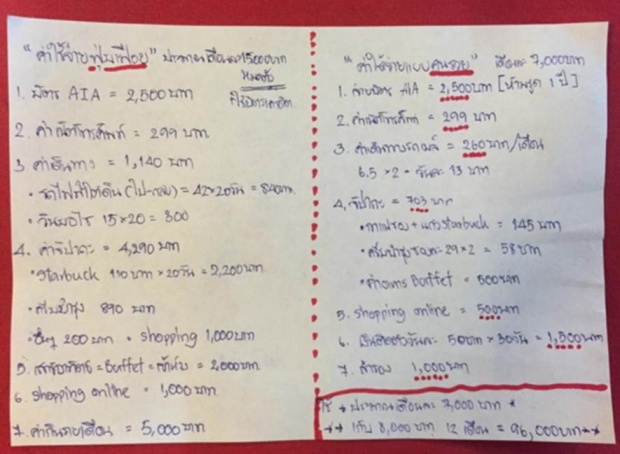 "ค่าใช้จ่ายฟุ่มเฟือย" ประมาณเดือนละ 1500บาท
หมดตัว
ใช้บัตรเครดิต
1. บัตร AIA = 2,500 บาท
2. ค่าโทรศัพท์ = 299 บาท.
3 ค่าเดินทาง = 1,140 บาท
• รถไฟฟ้าใต้ดิน (ไป-กลับ) = 42×20วัน = 840บาท.
• วินมอไซ 15×20 = 300
4. ค่าจิปาถะ = 4,290 บาท
• Starbuck 110 บาท × 20วัน = 2,200บาท
• ครีมบำรุง 890 บาท
• อื่นๆ 200 บาท • Shopping 1,000บาท
5. เสาร์อาทิตย์ = Buffet = = 2,000บาท.
6. Shopping online = 1,000 บาท
7. ค่ากินรายเดือน = 5,000 บาท
"ค่าใช้จ่ายแบบคนรวย" เดือนละ 7,000บาท
1. จ่ายบัตร AIA = 2,500บาท [ห้ามรูด 1 ปี]
2. ค่าโทรศัพท์ = 299 บาท
3. ค่าเดินทางรถเมล์ = 260บาท/เดือน
6.5 × 2 = วันละ 13 บาท
4. จิปาถะ = 703 บาท
• กาแฟซอง + แก้วstarbuck = 145 บาท
• ครีมบำรุงซองละ 29 × 2 = 58 บาท
• ค่าอาหาร Buffet = 500บาท
5. shopping online = 500บาท
6. เงินติดตัววันละ 50บาท × 30วัน = 1,500บาท
7. สำรอง 1,000บาท
ใช้ * ประมาณเดือนละ 7,000 บาท *
** เก็บ 8,000 บาท 12 เดือน = 96,000บาท**